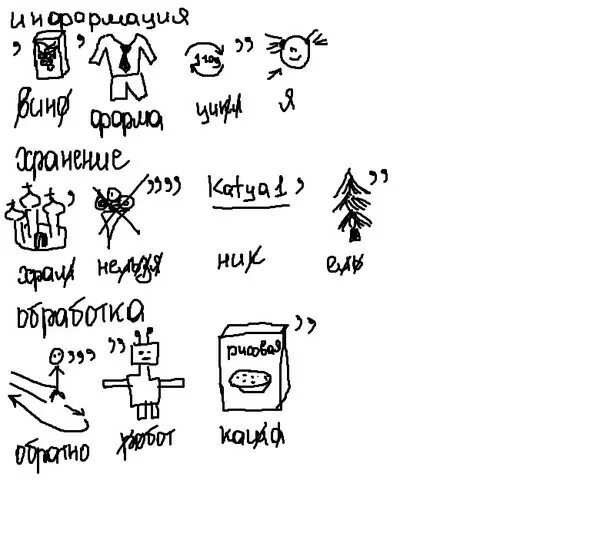 информация
, ,,
1 год
вино форма цикл я
хранение
, ,,,, Katya1 , ,,
храм нельзя ник ель
обработка
,,, ,, ,,
рисовая
обратно робот каша